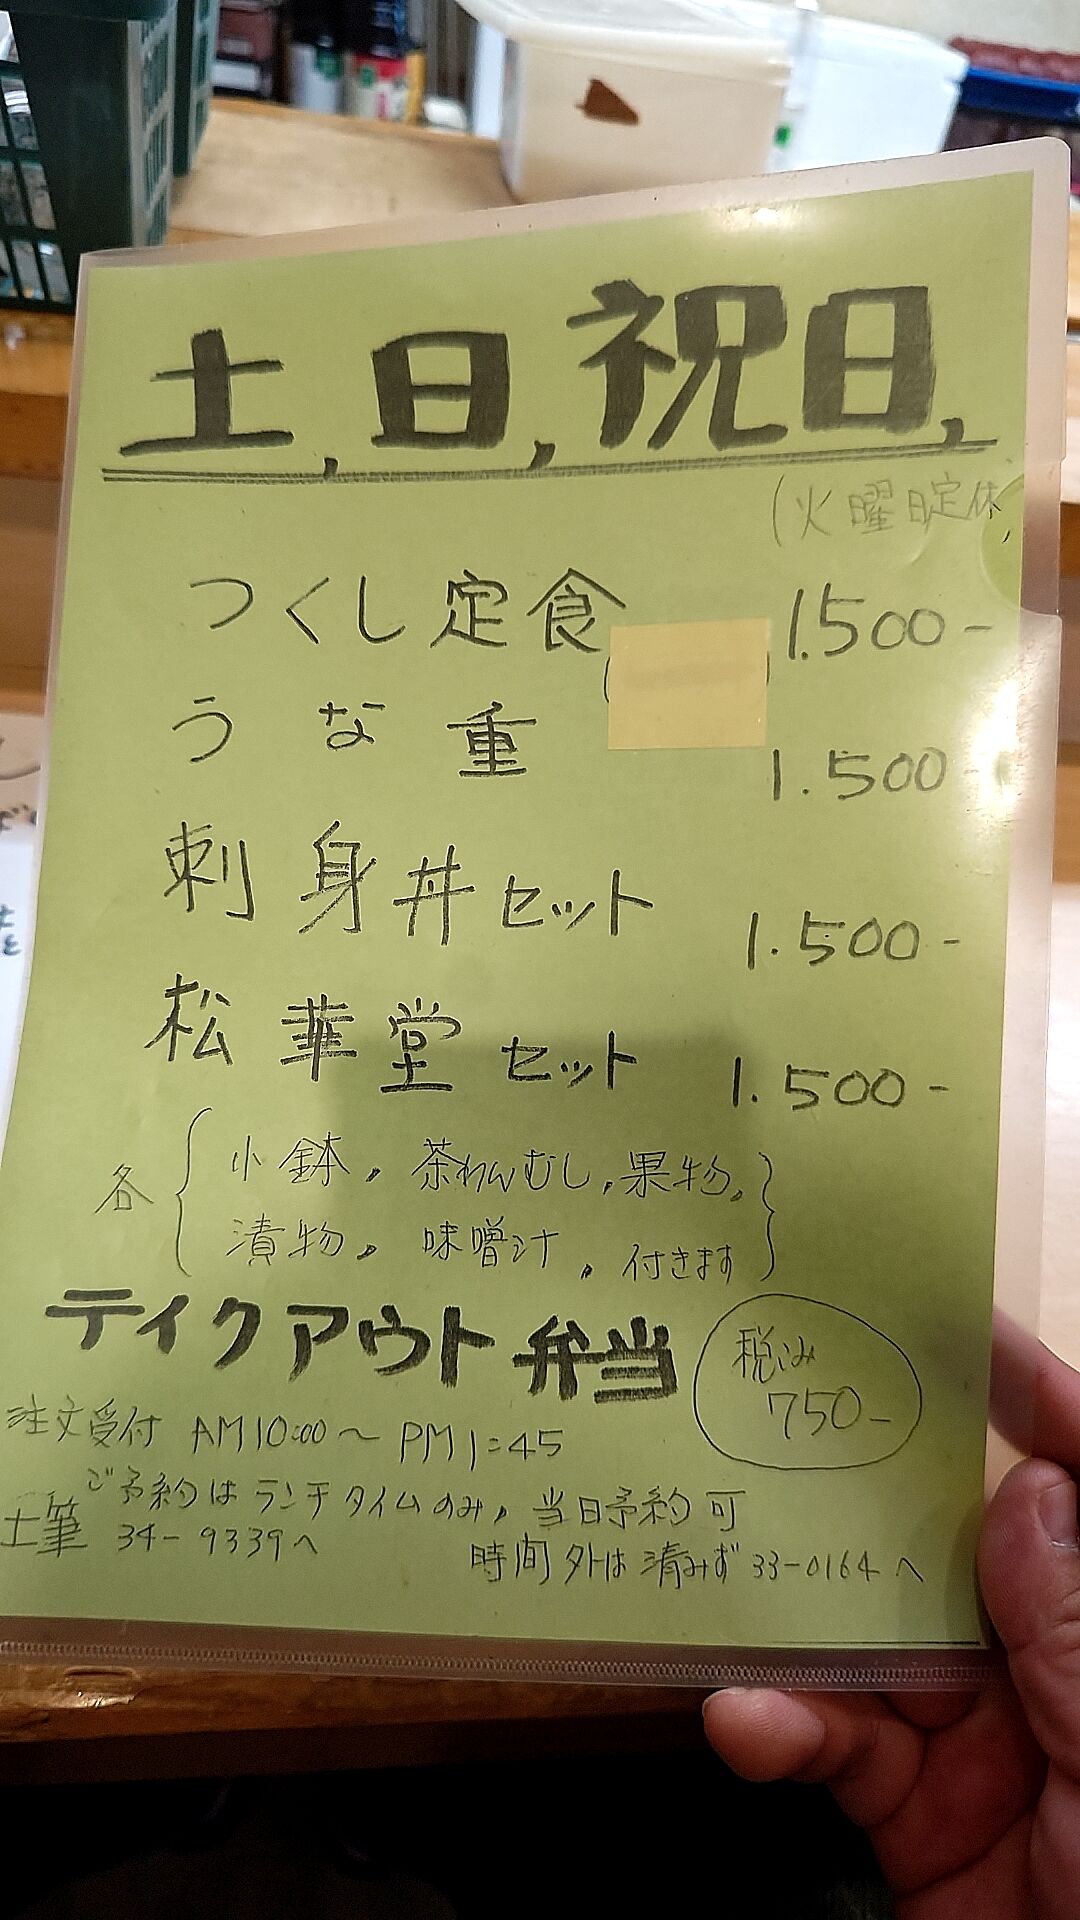 土,日,祝日,
(火曜日定休)
つくし定食 1.500-
うな重 1.500-
刺身丼セット 1.500-
松華堂セット 1.500-
各{小鉢,茶わんむし,果物,
漬物,味噌汁,付きます}
ティクアウト弁当
税込み
750-
注文受付 AM10:00〜PM1:45
ご予約はランチタイムのみ,当日予約可
土筆 34-9339へ
時間外は清みず33-0164へ